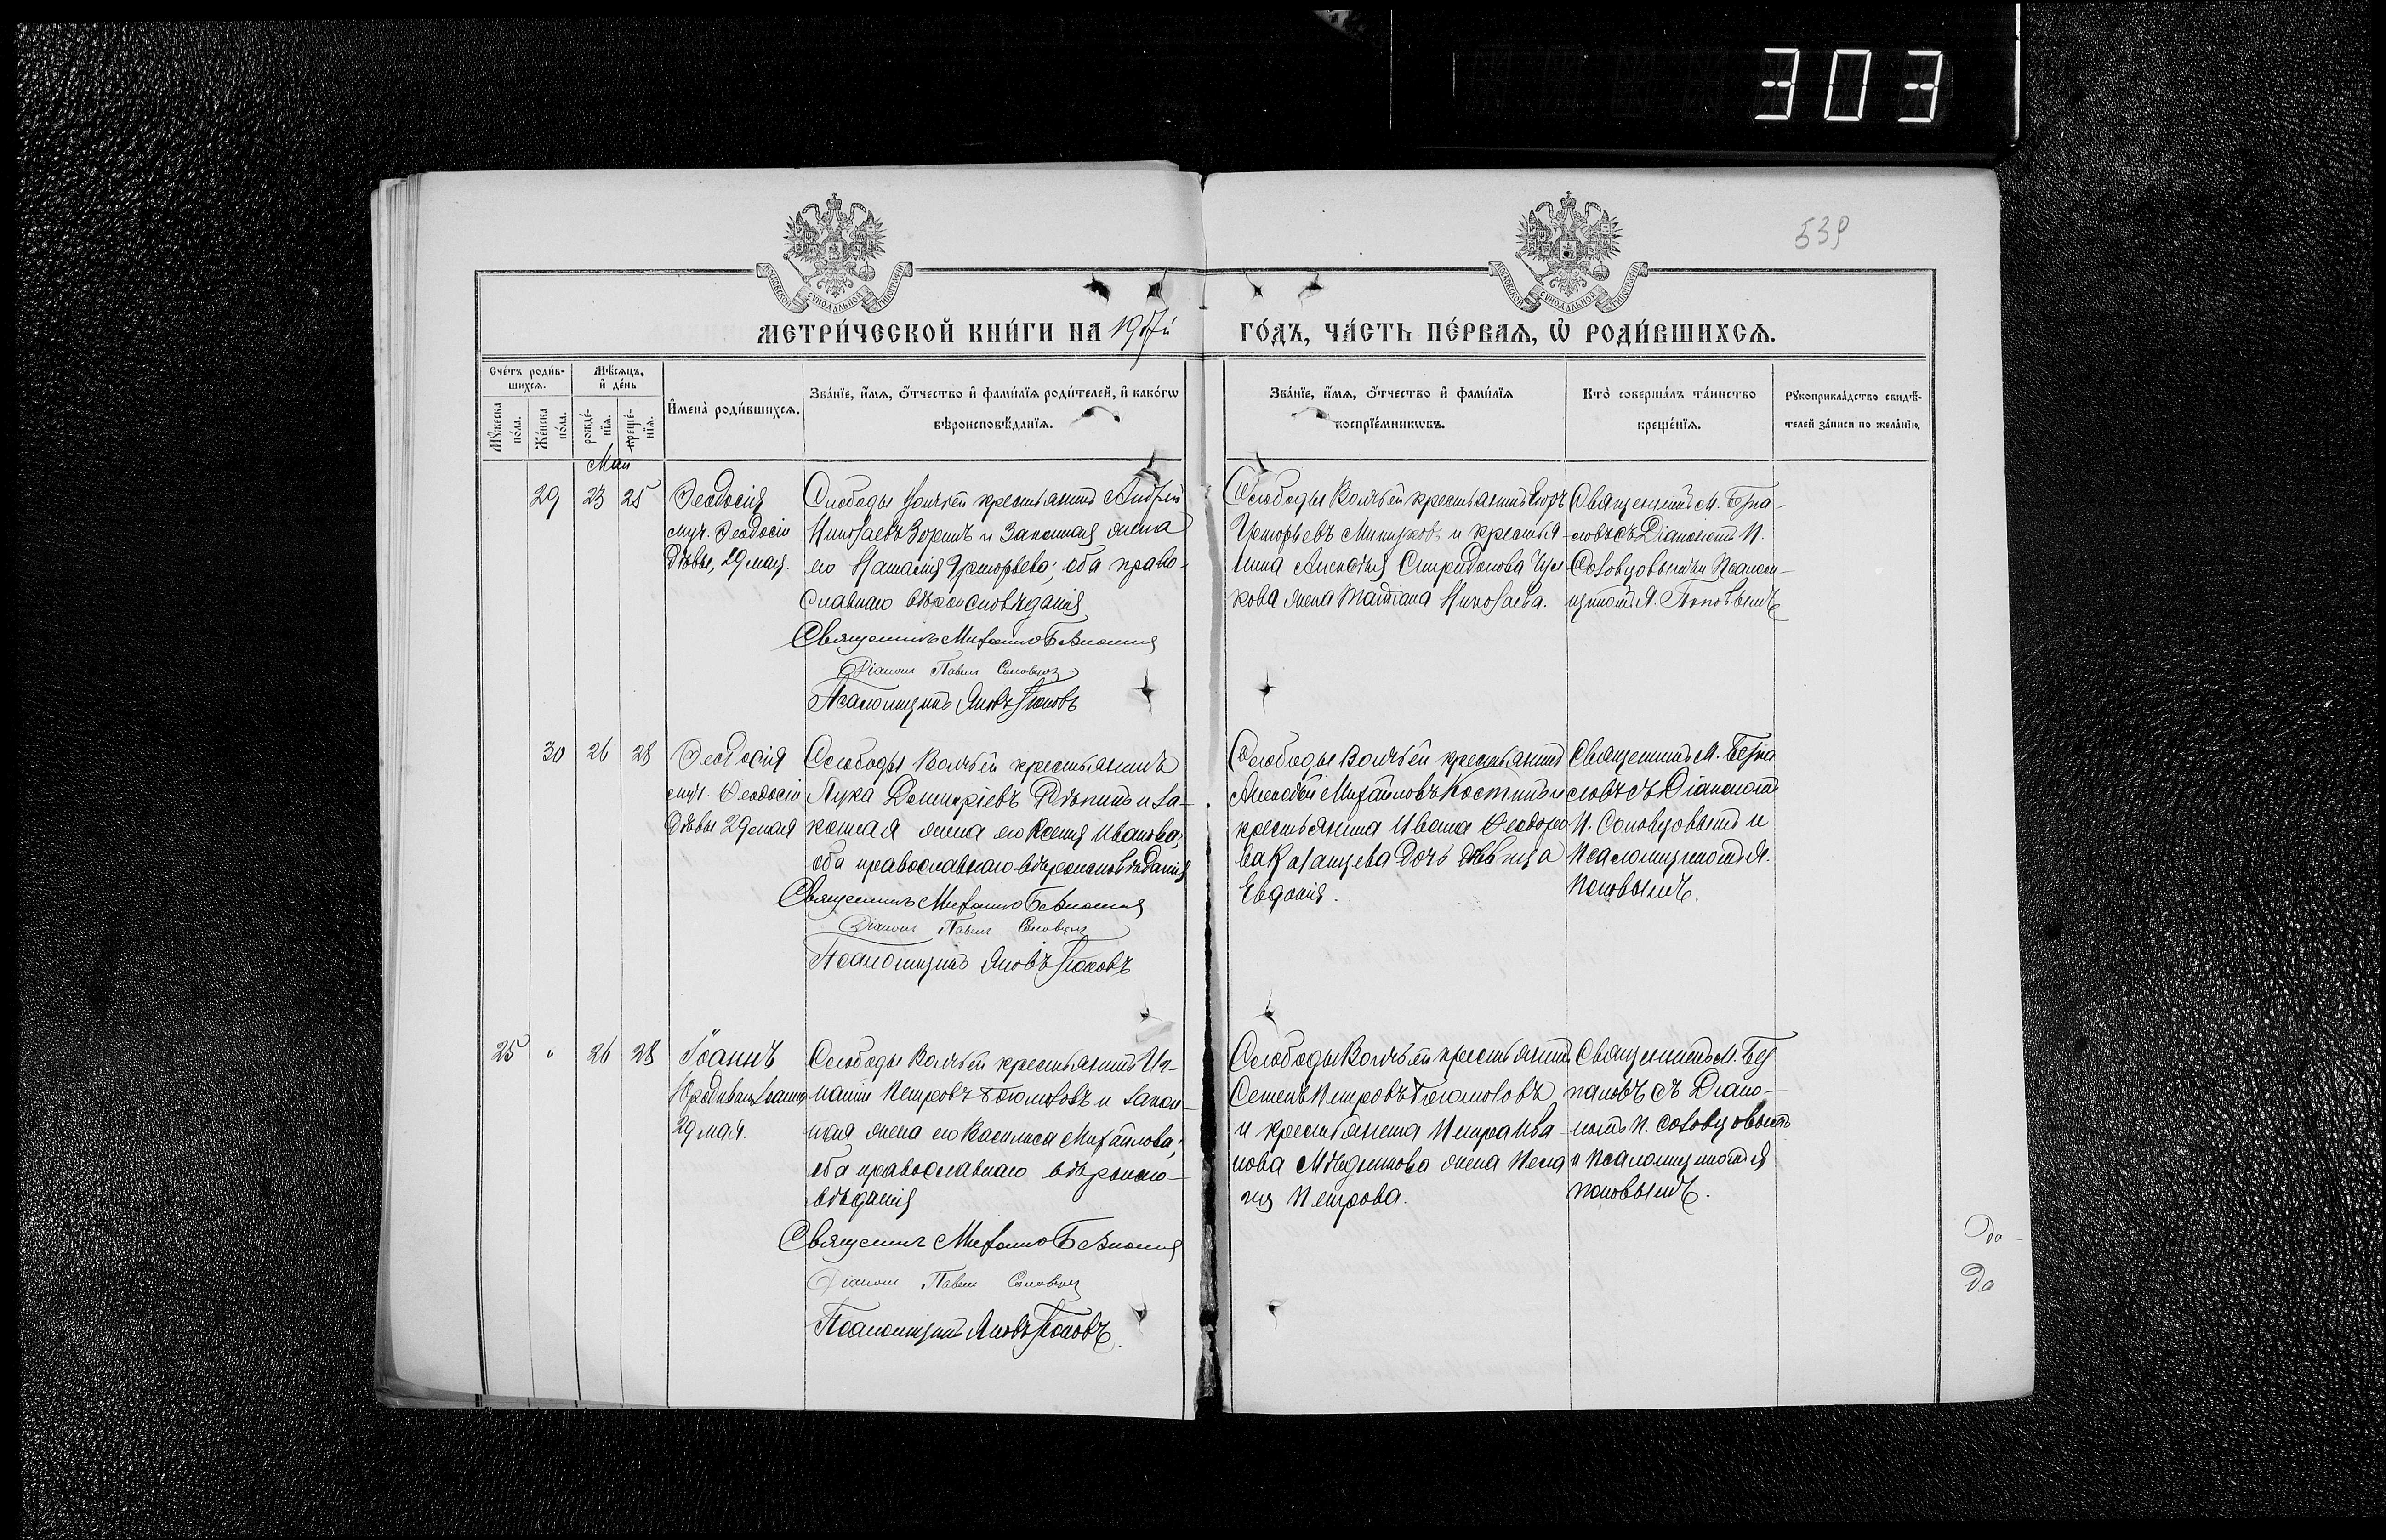 303
539
МЕТРИ́ЧЕСКОЙ КНИ́ГИ НА 1907й ГО́ДЪ, ЧА́СТЬ ПЕ́РВАЯ, Ѿ РОДИ́ВШИХСЯ.
Сче́тъ роди́в-
шихся.
Мѣ́сяцъ,
и҆ де́нь
Мꙋ́жеска
по́ла.
Же́нска
по́ла.
рожде́-
нїя.
креще́-
нїя.
И҆мена̀ роди́вшихся.
Зва́нїе, и҆́мя, ѻ҆́тчество и҆ фами́лїя роди́телей, и҆ како́гѡ
вѣроисповѣ́данїя.
Зва́нїе, и҆́мя, ѻ҆́тчество и҆ фами́лїя
воспрїе́мникѡвъ.
Кто̀ соверша́лъ та́инство
креще́нїя.
Рꙋкоприкла́дство свидѣ́-
телей за́писи по жела́нїю.
Мая
29 23 25
Ѳеодосія
муч. Ѳеодосіи
Дѣвы, 29 мая.
Слободы Волчьей крестьянинъ Андрей
Николаевъ и законная жена
его Наталія Григорьева; оба право-
славнаго вѣроисповѣданія
Священникъ Михаилъ
Діаконъ Павелъ Соловцовъ
Псаломщикъ Яковъ Поповъ
Слободы Волчьей крестьянинъ
Григорьевъ и крестья-
нина Алексѣя Спиридонова
жена Татіана Николаева.
Священникъ М.
съ Діакономъ П.
Соловцовымъ и Псалом-
щикомъ Я. Поповымъ
30 26 28
Ѳеодосія
муч. Ѳеодосіи
Дѣвы 29 мая
Слободы Волчьей крестьянинъ
Лука Димитріевъ и за-
конная жена его Ксенія Иванова,
оба православнаго вѣроисповѣданія
Священникъ Михаилъ
Діаконъ Павелъ Соловцовъ
Псаломщикъ Яковъ Поповъ
Слободы Волчьей крестьянинъ
Алексѣй Михайловъ Костинъ и
крестьянина Ивана Ѳеодоро-
ва Казанцева дочь дѣвица
Евдокія.
Священникъ М.
съ Діакономъ
П. Соловцовымъ и
Псаломщикомъ Я.
Поповымъ.
25 " 26 28
Іоаннъ
Юродивый Іоаннъ
29 мая.
Слободы Волчьей крестьянинъ Иг-
натій Петровъ и закон-
ная жена его Василиса Михайлова;
оба православнаго вѣроиспо-
вѣданія
Священникъ Михаилъ
Діаконъ Павелъ Соловцовъ
Псаломщикъ Яковъ Поповъ.
Слободы Волчьей крестьянинъ
Семенъ Петровъ
и крестьянина Петра Ива-
нова жена Пела-
гія Петрова.
Священникъ М.
съ Діако-
номъ П. Соловцовымъ
и Псаломщикомъ Я
Поповымъ.
До
До